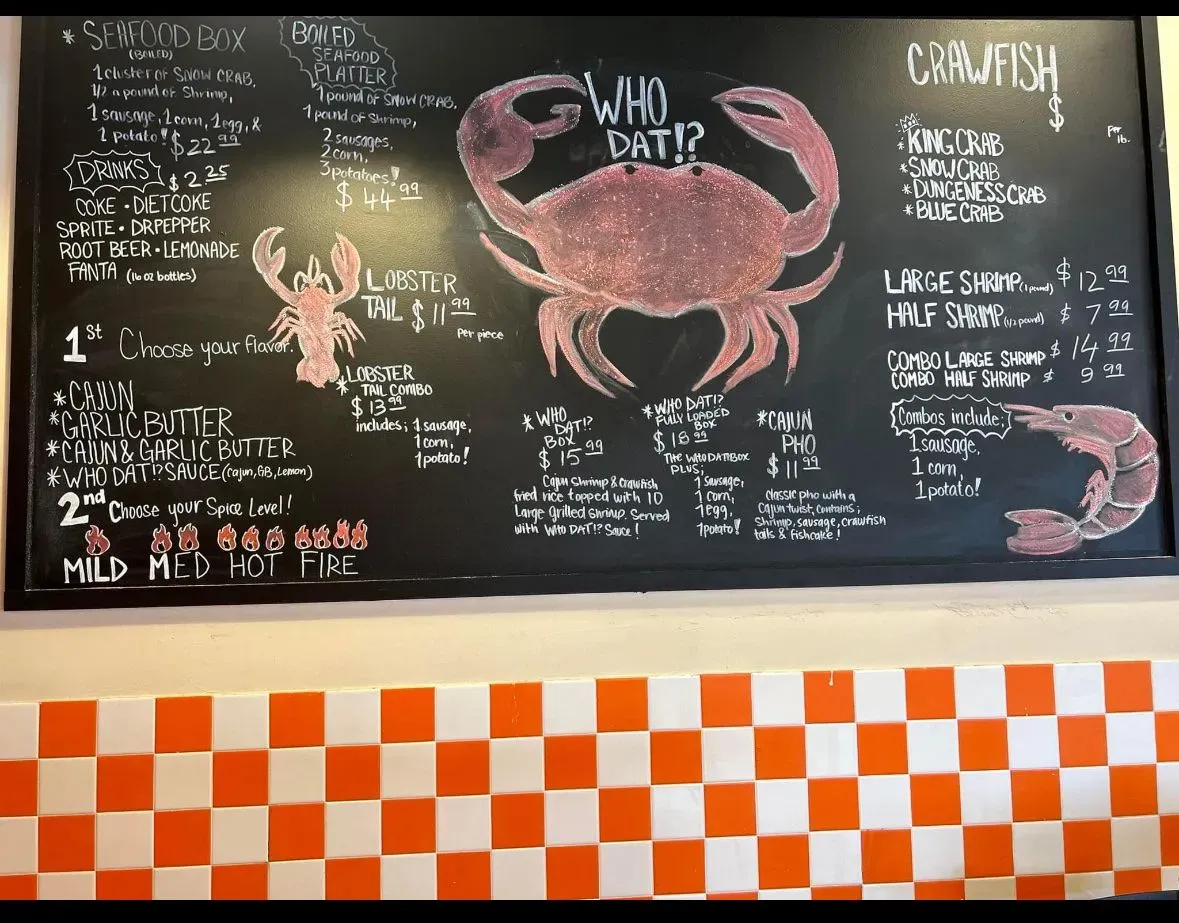 * SEAFOOD BOX
(BOILED)
1 cluster of SNOW CRAB,
1/2 a pound of Shrimp,
1 sausage, 1 corn, 1 egg, &
1 potato! $22.99
DRINKS $2.25
COKE • DIET COKE
SPRITE • DRPEPPER
ROOT BEER • LEMONADE
FANTA (16 oz bottles)
1st Choose your flavor.
*CAJUN
*GARLIC BUTTER
*CAJUN & GARLIC BUTTER
*WHO DAT!? SAUCE (Cajun, GB, Lemon)
2nd Choose your Spice Level!
MILD MED HOT FIRE
BOILED
SEAFOOD
PLATTER
1 pound of SNOW CRAB,
1 pound of Shrimp,
2 sausages,
2 corn,
3 potatoes!
$44.99
LOBSTER
TAIL $11.99
Per piece
*LOBSTER
TAIL COMBO
$13.99
includes; 1 sausage,
1 corn,
1 potato!
WHO
DAT!?
*WHO
DAT!?
BOX
$15.99
Cajun Shrimp & Crawfish
fried rice topped with 10
Large Grilled Shrimp. Served
with WHO DAT!? Sauce!
*WHO DAT!?
FULLY LOADED
BOX
$18.99
THE WHO DAT BOX
PLUS;
1 Sausage,
1 Corn,
1 egg,
1 potato!
*CAJUN
PHO
$11.99
classic pho with a
Cajun twist, contains;
Shrimp, sausage, crawfish
tails & fishcake!
CRAWFISH
$
Per
lb.
*KING CRAB
*SNOW CRAB
*DUNGENESS CRAB
*BLUE CRAB
LARGE SHRIMP (1 pound) $12.99
HALF SHRIMP (1/2 pound) $7.99
COMBO LARGE SHRIMP $14.99
COMBO HALF SHRIMP $9.99
Combos include;
1 sausage,
1 corn,
1 potato!